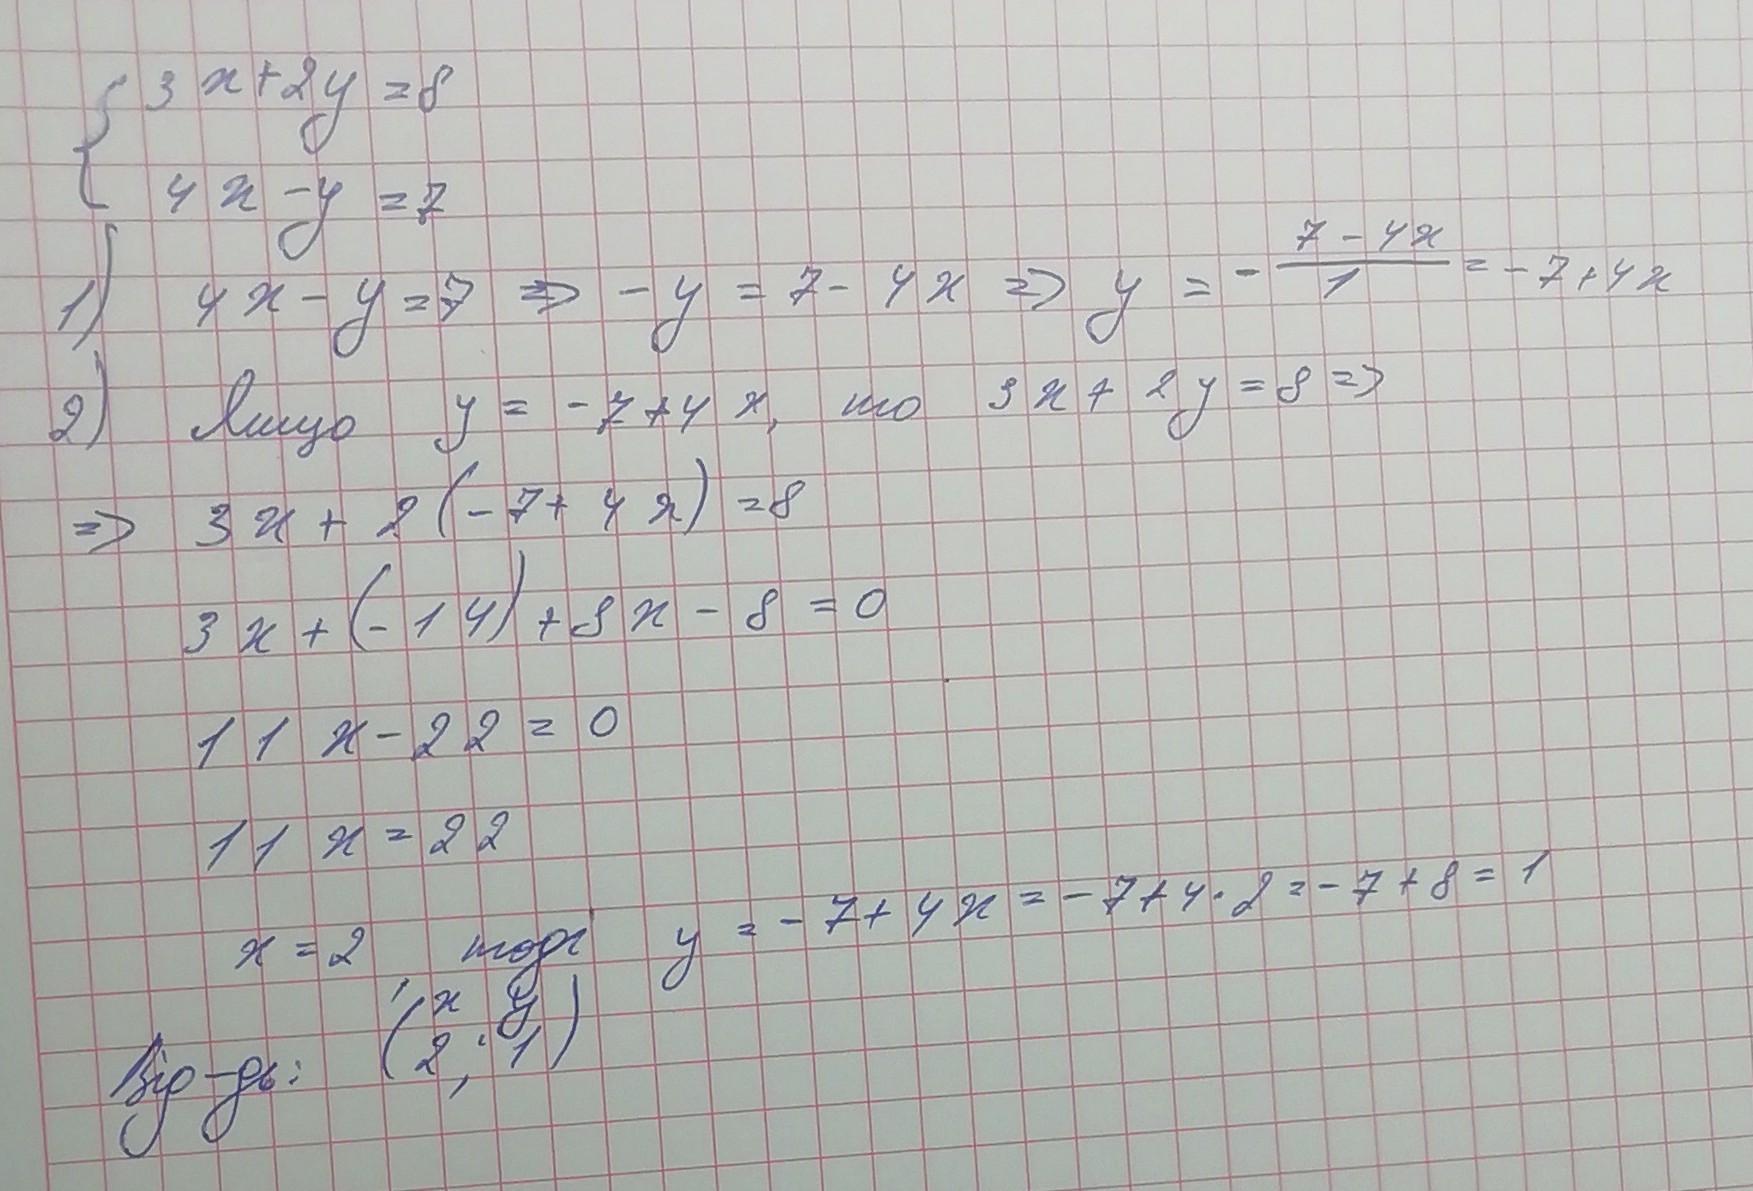 { 3x+2y=8
4x-y=7
1) 4x-y=7 => -y=7-4x => y = - (7-4x)/1 = -7+4x
2) Якщо y=-7+4x, то 3x+2y=8 =>
=> 3x+2(-7+4x)=8
3x+(-14)+8x-8=0
11x-22=0
11x=22
x=2, тоді y=-7+4x=-7+4·2=-7+8=1
x y
Від-дь: (2; 1)